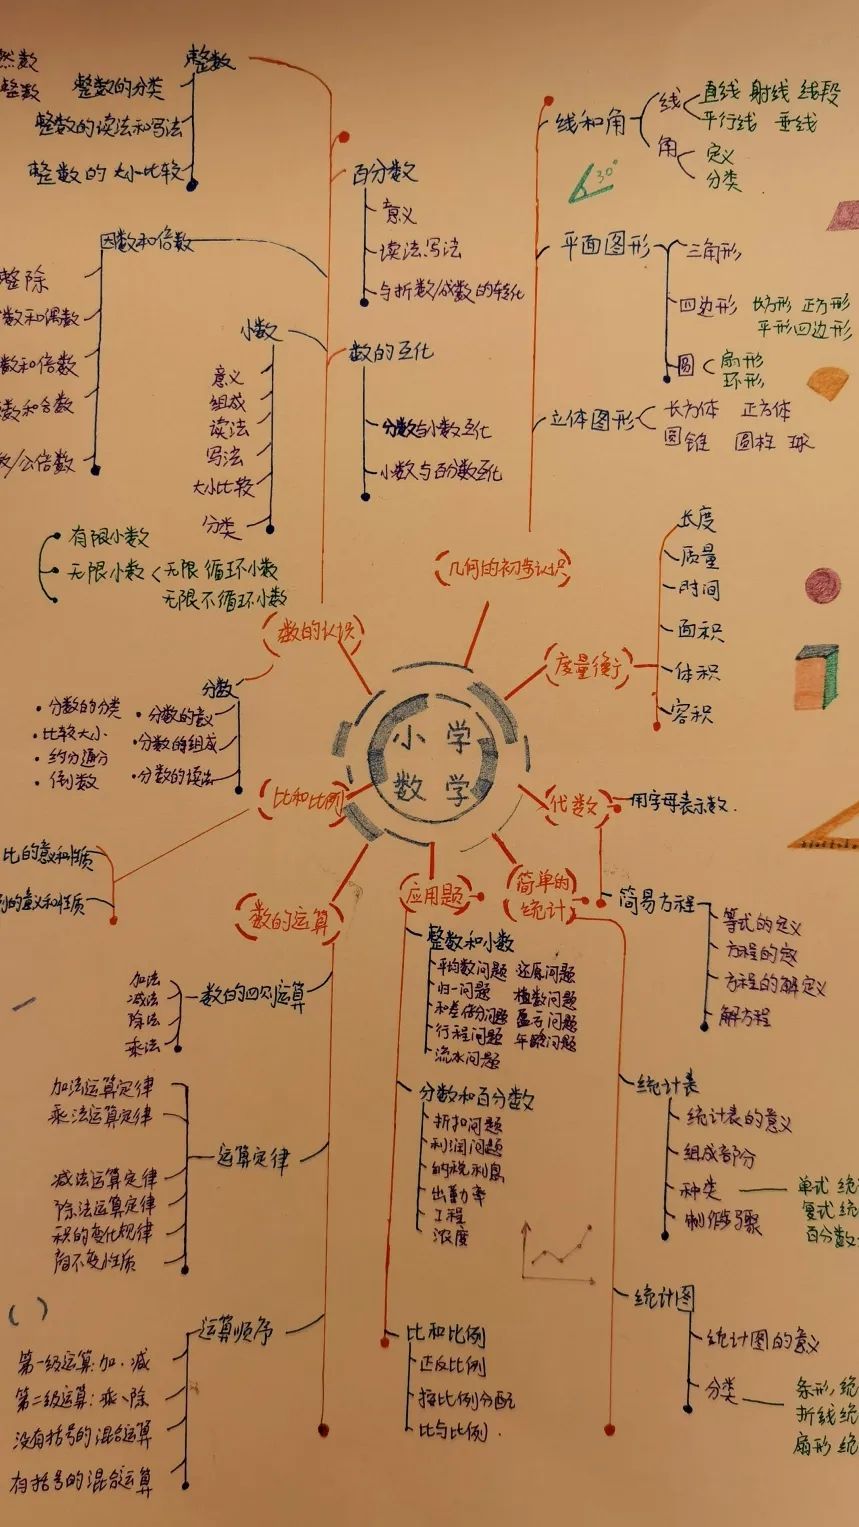 小学
数学
数的认识
整数
然数
整数
整数的分类
整数的读法和写法
整数的大小比较
因数和倍数
整除
数和偶数
数和倍数
数和合数
/公倍数
小数
意义
组成
读法
写法
大小比较
分类
有限小数
无限小数
无限循环小数
无限不循环小数
分数
·分数的分类
·比较大小
·约分通分
·倒数
·分数的意义
·分数的组成
·分数的读法
百分数
意义
读法写法
与折数/成数的转化
数的互化
分数与小数互化
小数与百分数互化
几何的初步认识
线和角
线
直线 射线 线段
平行线 垂线
角
定义
分类
30°
平面图形
三角形
四边形
长方形 正方形
平形四边形
圆
扇形
环形
立体图形
长方体 正方体
圆锥 圆柱 球
度量衡
长度
质量
时间
面积
体积
容积
代数
用字母表示数.
简易方程
等式的定义
方程的定义
方程的解定义
解方程
简单的
统计
统计表
统计表的意义
组成部分
种类
单式 统
复式 统
百分数
制作步骤
统计图
统计图的意义
分类
条形, 统
折线统
扇形 统
应用题
整数和小数
平均数问题 还原问题
归一问题 植数问题
和差倍分问题 盈亏问题
行程问题 年龄问题
流水问题
分数和百分数
折扣问题
利润问题
纳税利息
出勤率
工程
浓度
比和比例
正反比例
按比例分配
比与比例.
比和比例
比的意义和性质
例的意义和性质
数的运算
数的四则运算
加法
减法
除法
乘法
运算定律
加法运算定律
乘法运算定律
减法运算定律
除法运算定律
积的变化规律
商不变性质
运算顺序
( )
第一级运算:加、减
第二级运算:乘、除
没有括号的混合运算
有括号的混合运算